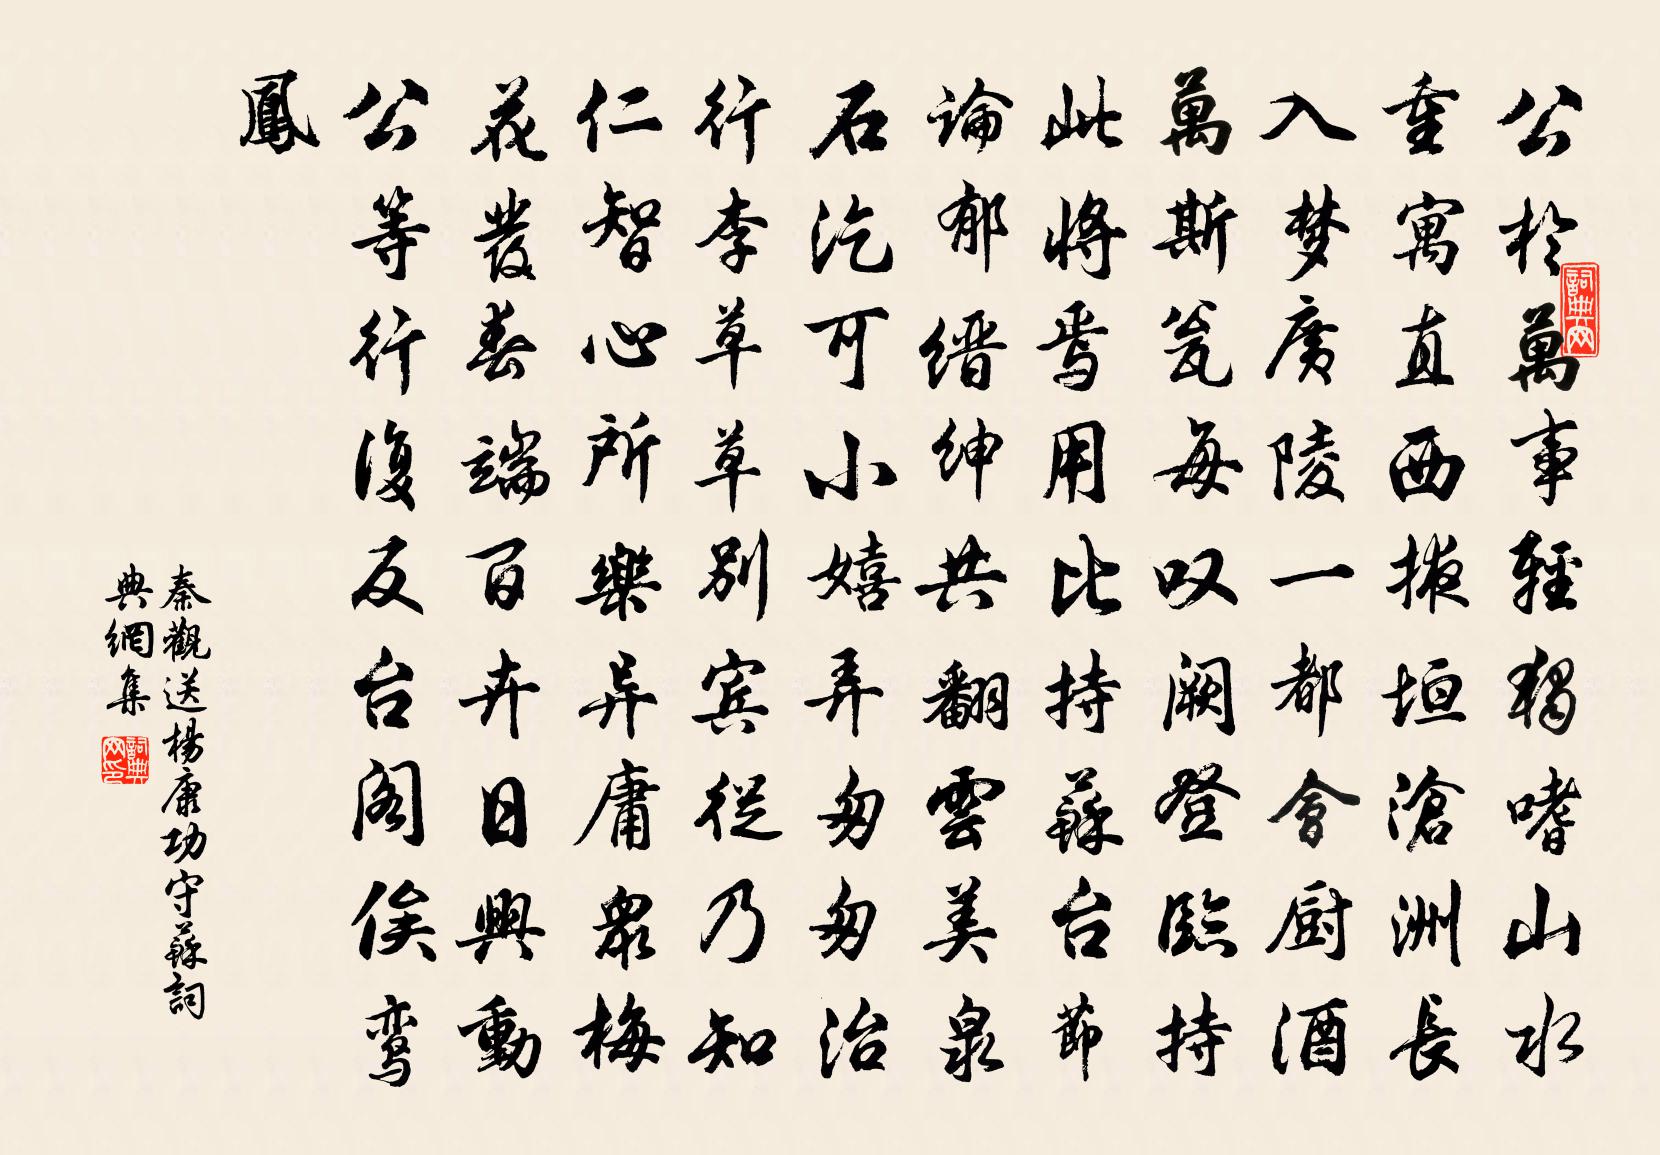 公於萬事輕獨嗜山水
重寓直西掖垣滄洲長
入梦廣陵一都會厨酒
萬斯瓮每叹阙登臨持
此將焉用比持蘇台節
论郁缙绅共翻雲美泉
石汔可小嬉弄匆匆治
行李草草别宾從乃知
仁智心所樂异庸衆梅
花發春端百卉日興動
公等行復反台阁俟鸾
鳳
秦觀送楊康功守蘇詞
典網集
詞典网
詞典网印